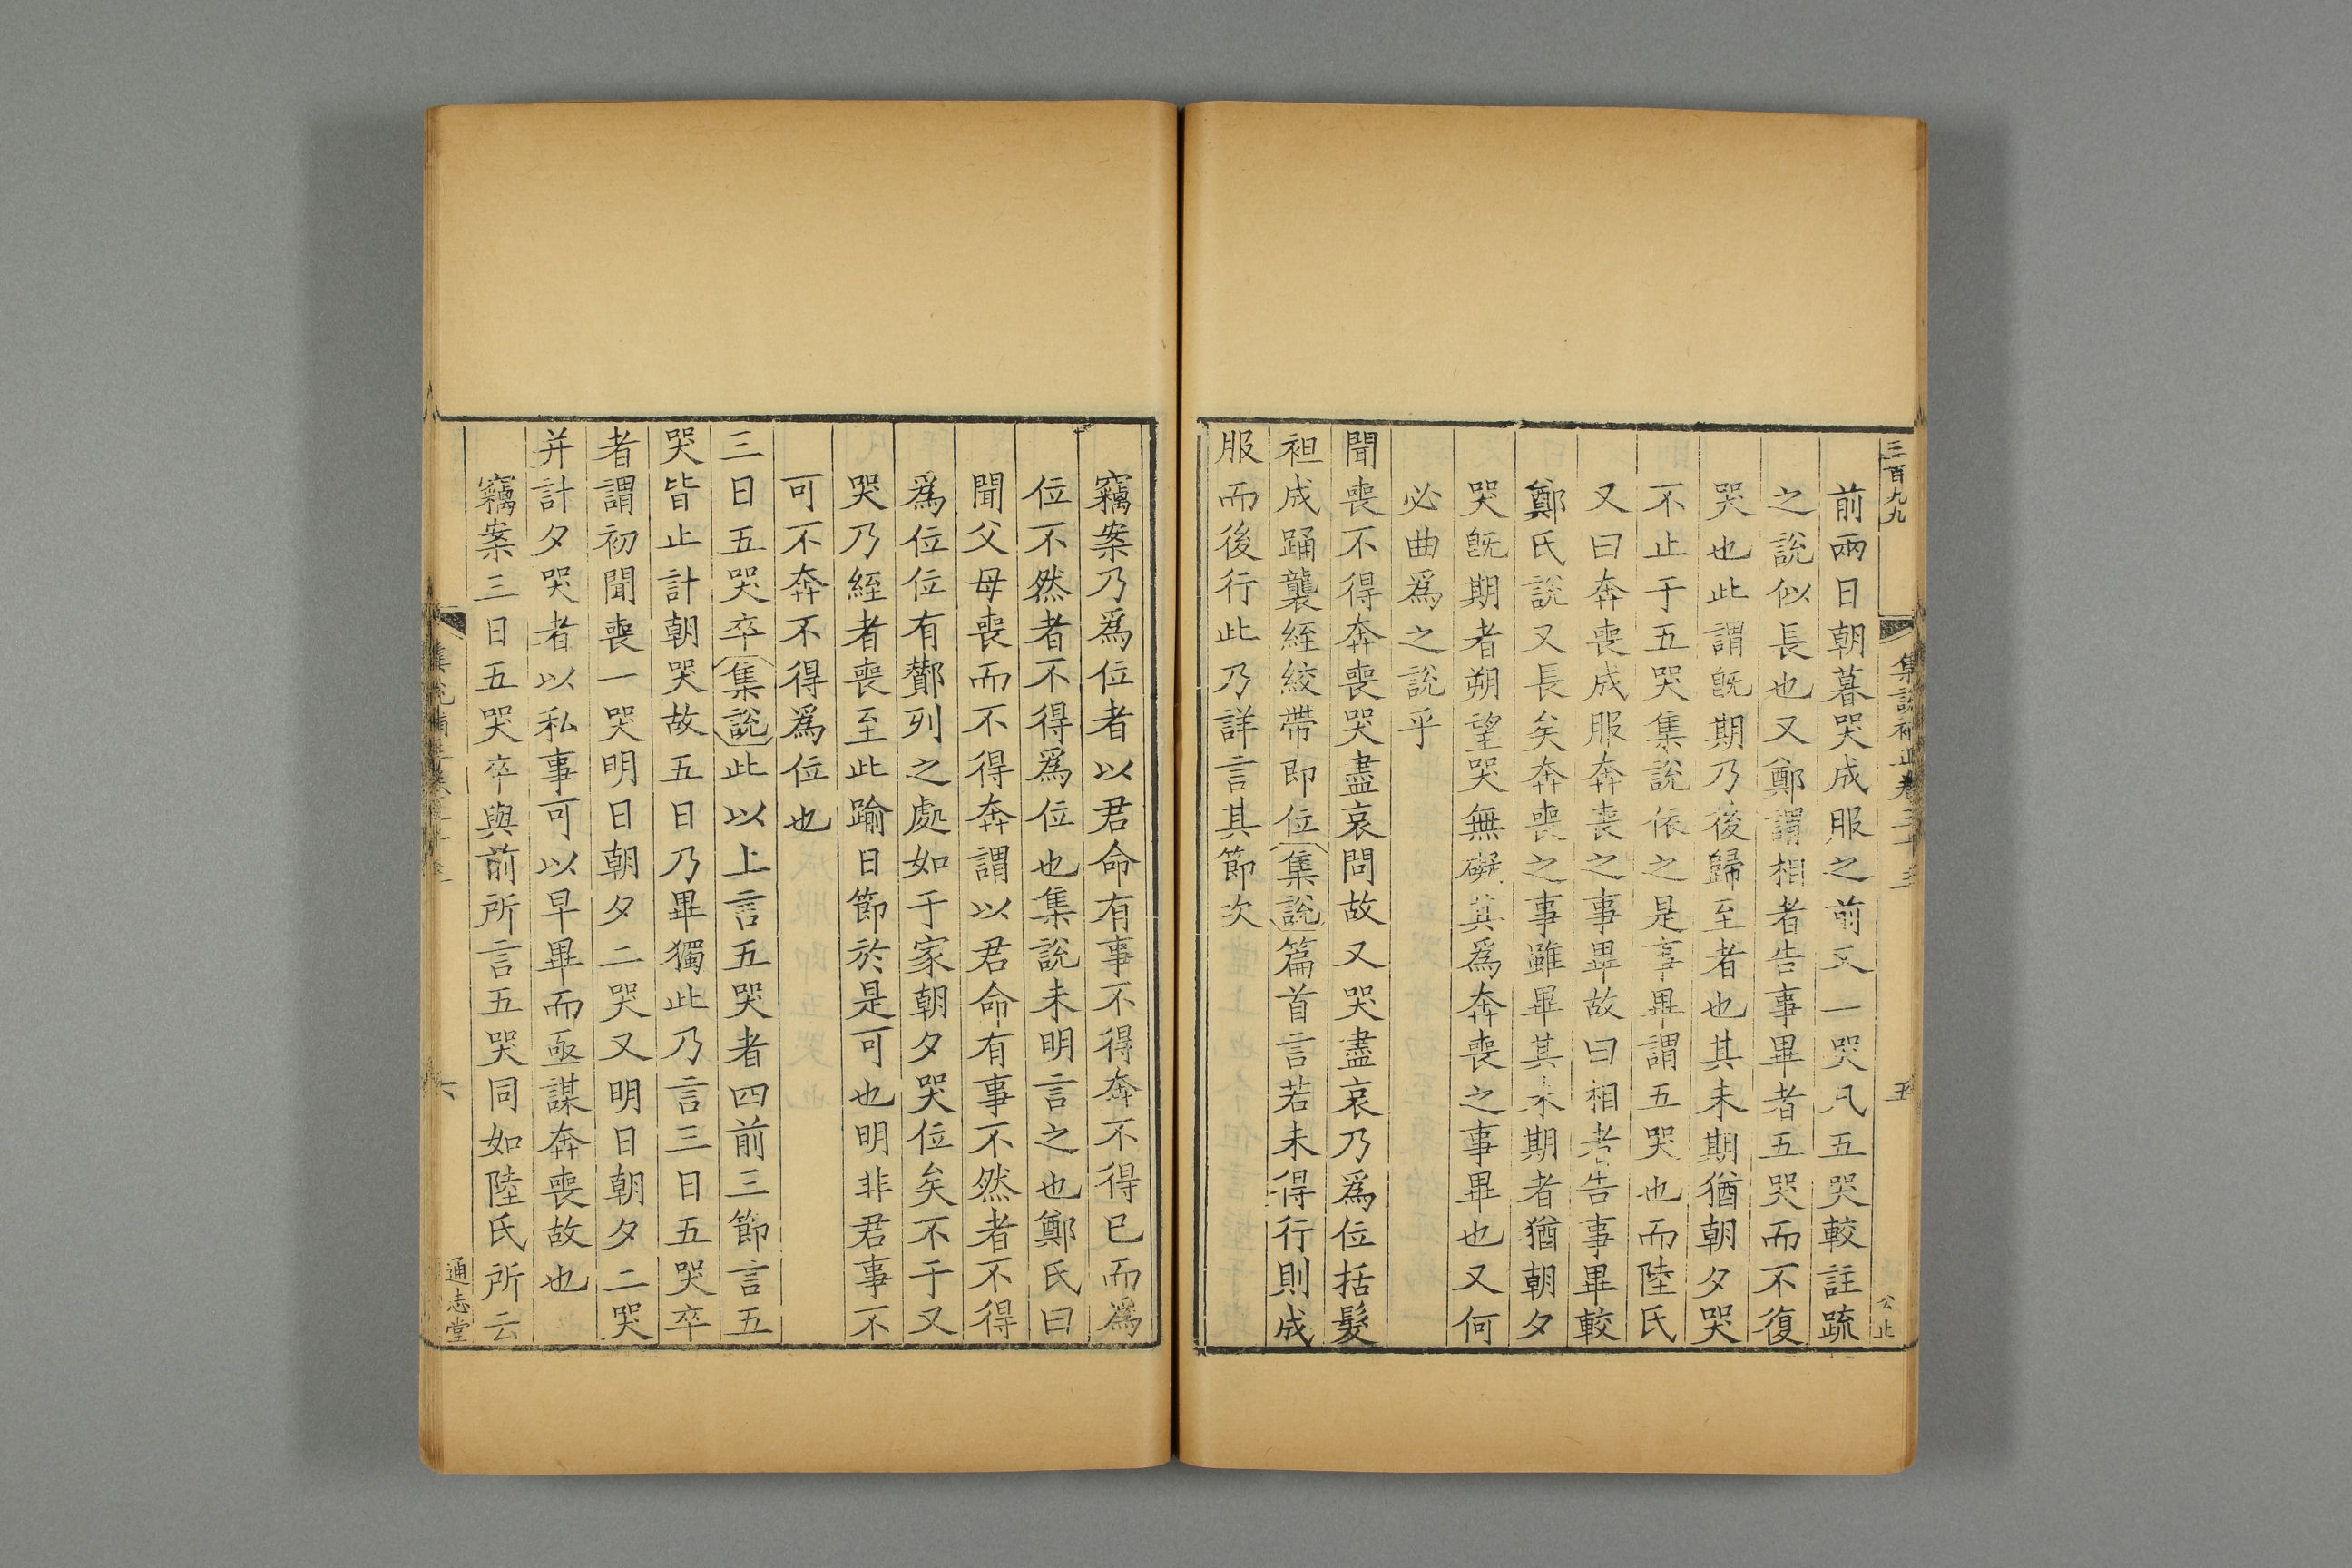 三百九九
集說補正卷三十三
五
公止
前兩日朝暮哭成服之前又一哭凡五哭較註疏
之說似長也又鄭謂相者告事畢者五哭而不復
哭也此謂旣期乃後歸至者也其未期猶朝夕哭
不止于五哭集說依之是事畢謂五哭也而陸氏
又曰奔喪成服奔喪之事畢故曰相者告事畢較
鄭氏說又長矣奔喪之事雖畢其未期者猶朝夕
哭旣期者朔望哭無礙其爲奔喪之事畢也又何
必曲爲之說乎
聞喪不得奔喪哭盡哀問故又哭盡哀乃爲位括髮
袒成踊襲絰絞帶即位集說篇首言若未得行則成
服而後行此乃詳言其節次
竊案乃爲位者以君命有事不得奔不得已而爲
位不然者不得爲位也集說未明言之也鄭氏曰
聞父母喪而不得奔謂以君命有事不然者不得
爲位位有酇列之處如于家朝夕哭位矣不于又
哭乃絰者喪至此踰日節於是可也明非君事不
可不奔不得爲位也
三日五哭卒集說此以上言五哭者四前三節言五
哭皆止計朝哭故五日乃畢獨此乃言三日五哭卒
者謂初聞喪一哭明日朝夕二哭又明日朝夕二哭
并計夕哭者以私事可以早畢而亟謀奔喪故也
竊案三日五哭卒與前所言五哭同如陸氏所云
六
通志堂